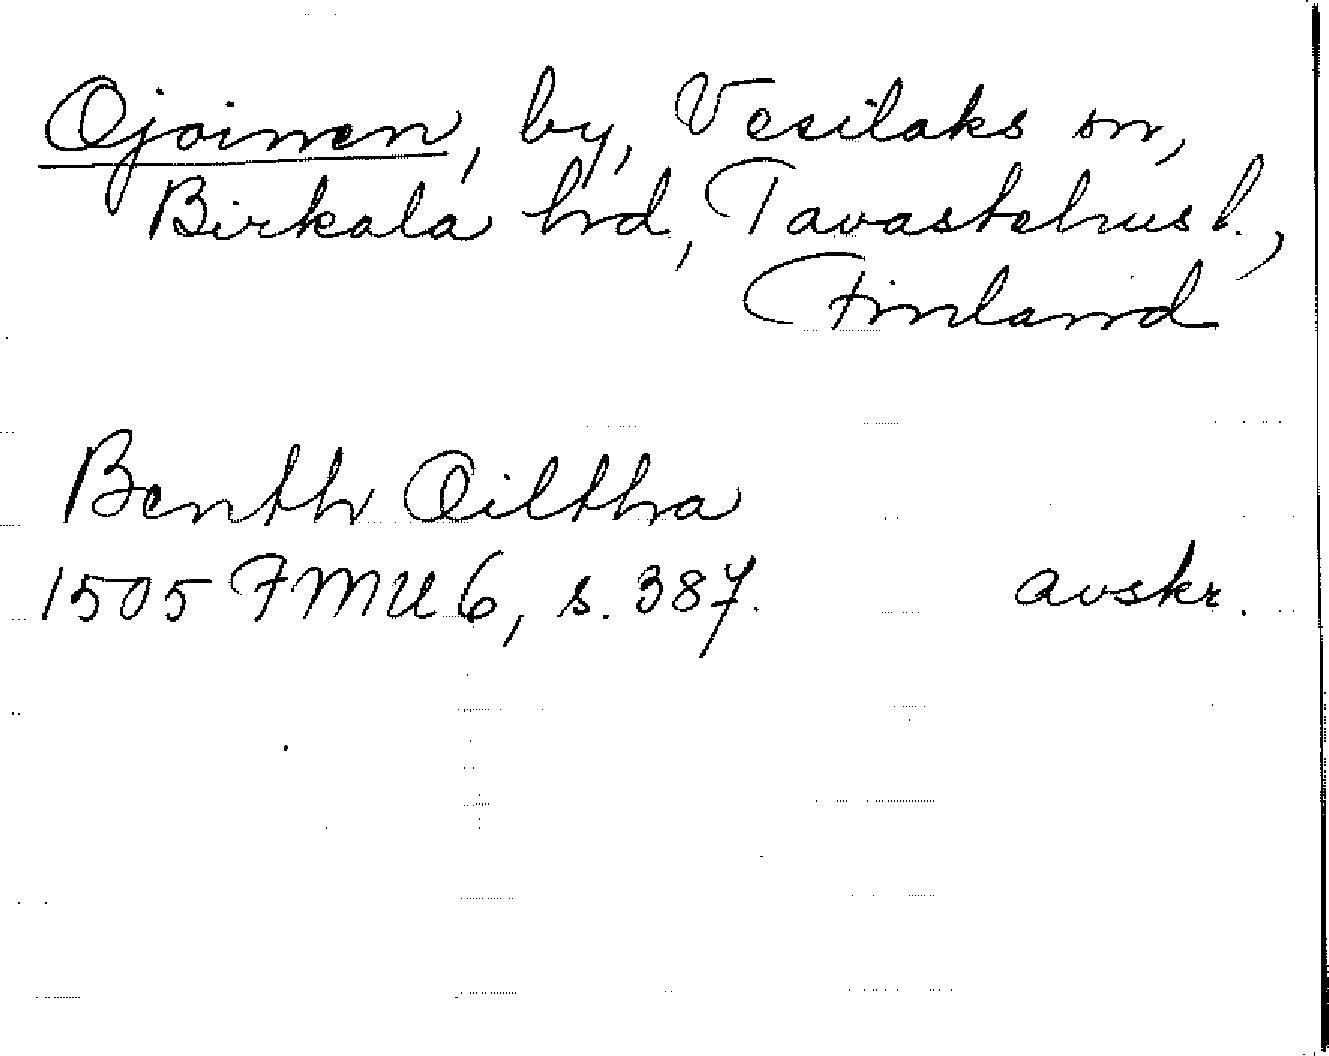 Ojoinen, by, Vesilaks sn,
Birkala hrd, Tavastehus l.,
Finland
Benth Oiltha
1505 FMU 6, s. 387. avskr.